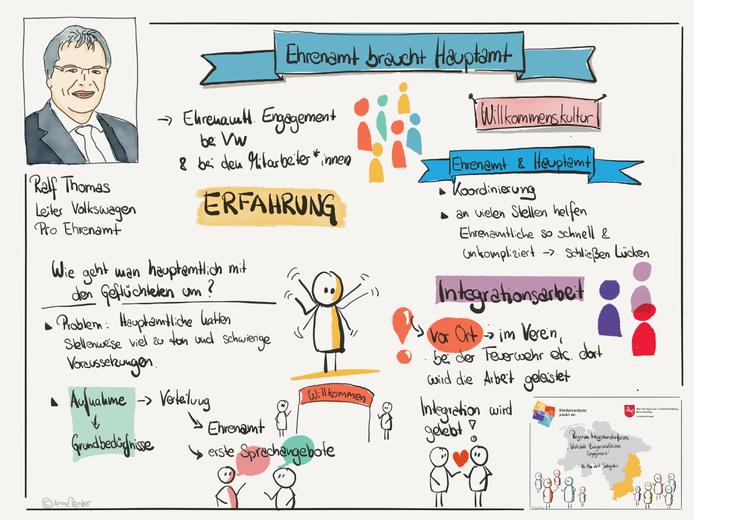 Ehrenamt braucht Hauptamt
Ralf Thomas
Leiter Volkswagen
Pro Ehrenamt
→ Ehrenamtl. Engagement
bei VW
& bei den Mitarbeiter*innen
ERFAHRUNG
Willkommenskultur
Ehrenamt & Hauptamt
Koordinierung
an vielen Stellen helfen
Ehrenamtliche so schnell &
unkompliziert → schließen Lücken
Wie geht man hauptamtlich mit
den Geflüchteten um?
Problem: Hauptamtliche hatten
stellenweise viel zu tun und schwierige
Voraussetzungen.
Aufnahme → Verteilung
Grundbedürfnisse
Ehrenamt
erste Sprachangebote
Willkommen
Integrationsarbeit
vor Ort → im Verein,
bei der Feuerwehr etc. dort
wird die Arbeit geleistet
Integration wird
gelebt!
Niedersachsen
packt an
Regionale Integrationskonferenz
Engagement